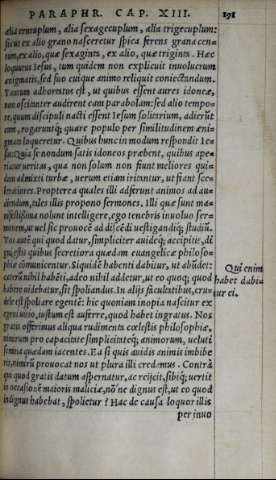 PARAPHR. CAP. XIII. 191
alia centuplum, alia sexagecuplum, alia trigecuplum:
sicut ex alio grano nasceretur spica ferens grana cen-
tum, ex alio, quæ sexaginta, ex alio, quæ triginta. Hæc
loquutus Iesus, tum quidem non explicuit inuolucrum
ænigmatis, sed suo cuique animo reliquit coniectandum.
Tantum adhortatus est, ut quibus essent aures idoneæ,
non oscitanter audirent eam parabolam: sed alio tempo-
re, quum discipuli nacti essent Iesum solitarium, adierūt
eum, rogarantq́; quare populo per similitudinem æni-
gmata loqueretur. Quibus hunc in modum respondit Ie-
sus: Quia se nondum satis idoneos præbent, quibus ape-
riatur ueritas, qua non solum non fiunt meliores qui-
dam admixti turbæ, uerum etiam irritantur, ut fiant sce-
leratiores. Propterea quales illi adferunt animos ad au-
diendum, tales illis propono sermones. Illi quæ sunt ma-
nifestissima nolunt intelligere, ego tenebris inuoluo ser-
monem, ut uel sic prouocē ad discēdi uestigandiq́; studiū.
Vos autē qui quod datur, simpliciter auideq́; accipitis, di
gni estis quibus secretiora quædam euangelicæ philoso-
phiæ cōmunicentur. Siquidē habenti dabitur, ut abūdet:
cæterū nihil habēti, adeo nihil addetur, ut eo quoq; quod
habere uidebatur, sit spoliandus. In alijs facultatibus, cru-
dele est spoliare egentē: hic quoniam inopia nascitur ex
egeni uitio, iustum est auferre, quod habet ingratus. Nos
gratis offerimus aliqua rudimenta cœlestis philosophiæ,
nimirum pro capacitate simpliciteq́; animorum, ueluti
semina quædam iacentes. Ea si quis auidis animis imbibe
rit, nimirū prouocat nos ut plura illi credamus. Contrà
qui quod gratis datum aspernatur, ac reijcit, sibiq́; uertit
in occasionē maioris maliciæ, nō'ne dignus est, ut eo quod
indignus habebat, spolietur? Hac de causa loquor illis
per inuo
Qui enim
habet dabi-
tur ei.